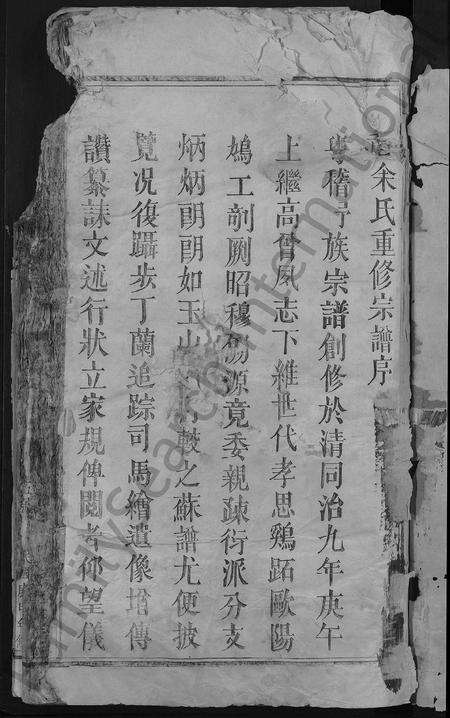 余氏重修宗譜序
稽予族宗譜創修於清同治九年庚午
上繼高曾夙志下維世代孝思鷄跖歐陽
鳩工剞劂昭穆 源竟委親疎衍派分支
炳炳朗朗如玉山 較之蘇譜尤便披
覽况復躡步丁蘭追踪司馬繪遺像增傳
讚纂誄文述行狀立家規俾閱者仰望儀
FamilySearch International